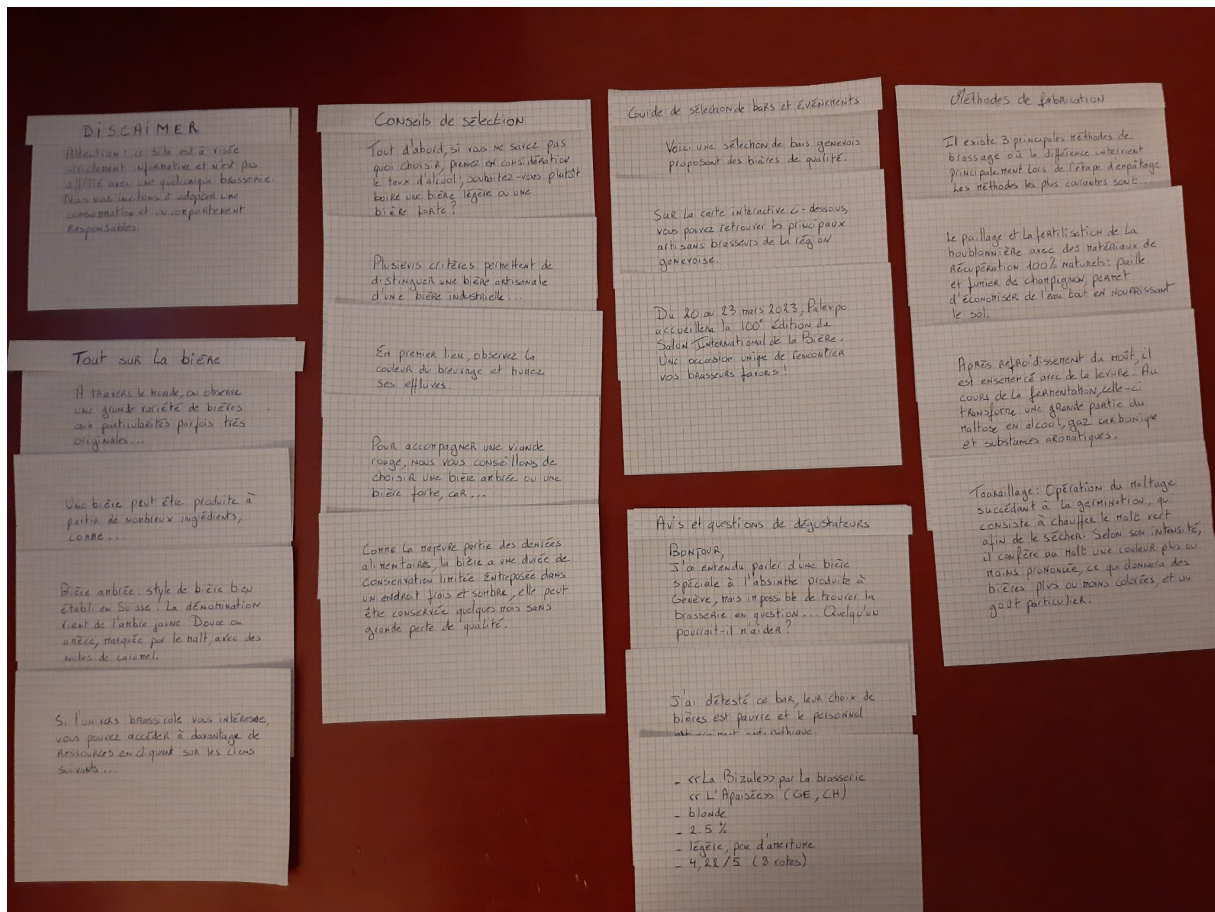 DISCAIMER
Attention! ce site est à visée
strictement informative et n'est pas
affilié avec une quelconque brasserie.
Nous vous invitons à adopter une
consommation et un comportement
Responsables.
Tout sur la bière
À travers le monde, on observe
une grande variété de bières
aux particularités parfois très
originales...
Une bière peut être produite à
partir de nombreux ingrédients,
comme...
Bière ambrée : style de bière bien
établi en Suisse. La dénomination
vient de l'ambre jaune. Douce ou
amère, marquée par le malt, avec des
notes de caramel.
Si l'univers brassicole vous intéresse,
vous pouvez accéder à davantage de
Ressources en cliquant sur les liens
suivants...
Conseils de sélection
Tout d'abord, si vous ne savez pas
quoi choisir, prenez en considération
le taux d'alcool; souhaitez-vous plutôt
boire une bière légère ou une
bière forte?
Plusieurs critères permettent de
distinguer une bière artisanale
d'une bière industrielle...
En premier lieu, observez la
couleur du breuvage et humez
ses effluves.
Pour accompagner une viande
rouge, nous vous conseillons de
choisir une bière ambrée ou une
bière forte, car...
Comme la majeure partie des denrées
alimentaires, la bière a une durée de
conservation limitée. Entreposée dans
un endroit frais et sombre, elle peut
être conservée quelques mois sans
grande perte de qualité.
Guide de sélection de bars et événements
Voici une sélection de bars genevois
proposant des bières de qualité.
Sur la carte interactive ci-dessous,
vous pouvez retrouver les principaux
artisans brasseurs de la région
genevoise.
Du 20 au 23 mars 2023, Palexpo
accueillera la 100e édition du
Salon International de la Bière.
Une occasion unique de rencontrer
vos brasseurs favoris!
Avis et questions de dégustateurs
Bonjour,
J'ai entendu parler d'une bière
spéciale à l'absinthe produite à
Genève, mais impossible de trouver la
brasserie en question... Quelqu'un
pourrait-il m'aider?
J'ai détesté ce bar, leur choix de
bières est pauvre et le personnel
antipathique.
- <<La Bizule>> par la brasserie
<<L'Apaisée>> (GE, CH)
- blonde
- 2.5 %
- légère, peu d'amertume
- 4,22/5 (8 votes)
Méthodes de fabrication
Il existe 3 principales méthodes de
brassage où la différence intervient
principalement lors de l'étape d'empâtage
Les méthodes les plus courantes sont...
Le paillage et la fertilisation de la
houblonnière avec des matériaux de
récupération 100% naturels: paille
et fumier de champignon, permet
d'économiser de l'eau tout en nourrissant
le sol.
Après refroidissement du moût, il
est ensemencé avec de la levure. Au
cours de la fermentation, celle-ci
transforme une grande partie du
maltose en alcool, gaz carbonique
et substances aromatiques.
Touraillage: Opération du maltage
succédant à la germination, qui
consiste à chauffer le malt vert
afin de le sécher. Selon son intensité,
il confère au malt une couleur plus ou
moins prononcée, ce qui donnera des
bières plus ou moins colorées, et un
goût particulier.